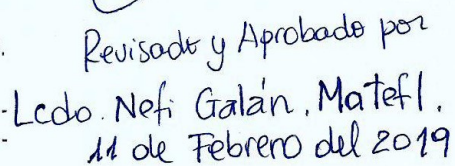 Revisado y Aprobado por
Lcdo. Nefi Galán. Matefl.
11 de Febrero del 2019